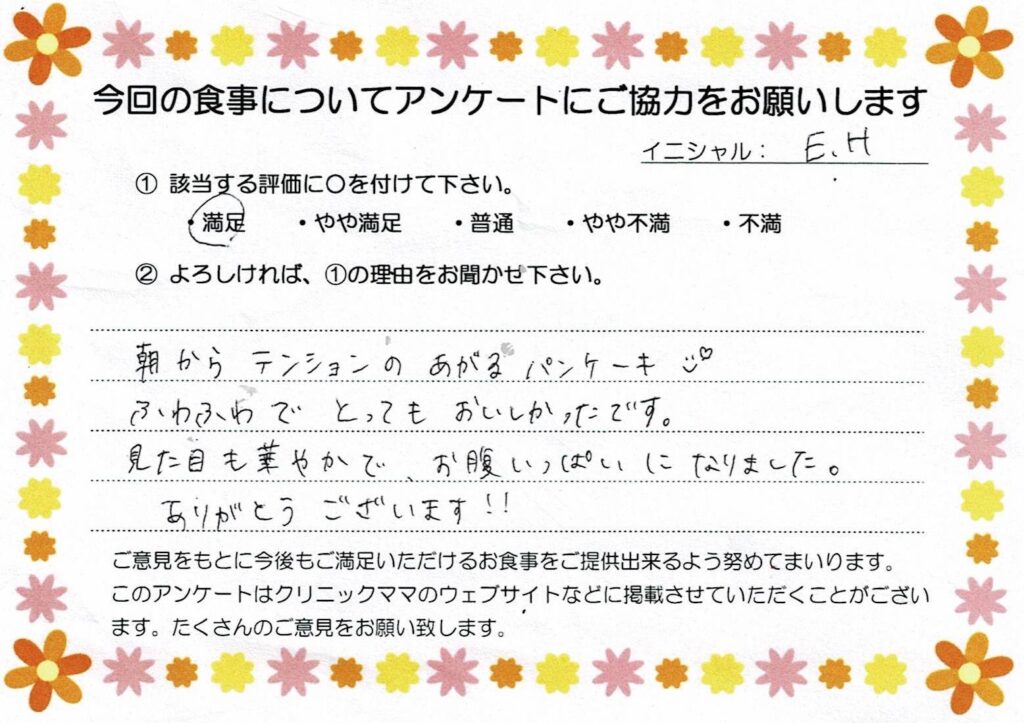 今回の食事についてアンケートにご協力をお願いします
イニシャル： E.H
① 該当する評価に〇を付けて下さい。
・満足 ・やや満足 ・普通 ・やや不満 ・不満
② よろしければ、①の理由をお聞かせ下さい。
朝から テンションの あがる パンケーキ
ふわふわで とっても おいしかったです。
見た目も華やかで、お腹いっぱいに なりました。
ありがとう ございます!!
ご意見をもとに今後もご満足いただけるお食事をご提供出来るよう努めてまいります。
このアンケートはクリニックママのウェブサイトなどに掲載させていただくことがござい
ます。たくさんのご意見をお願い致します。